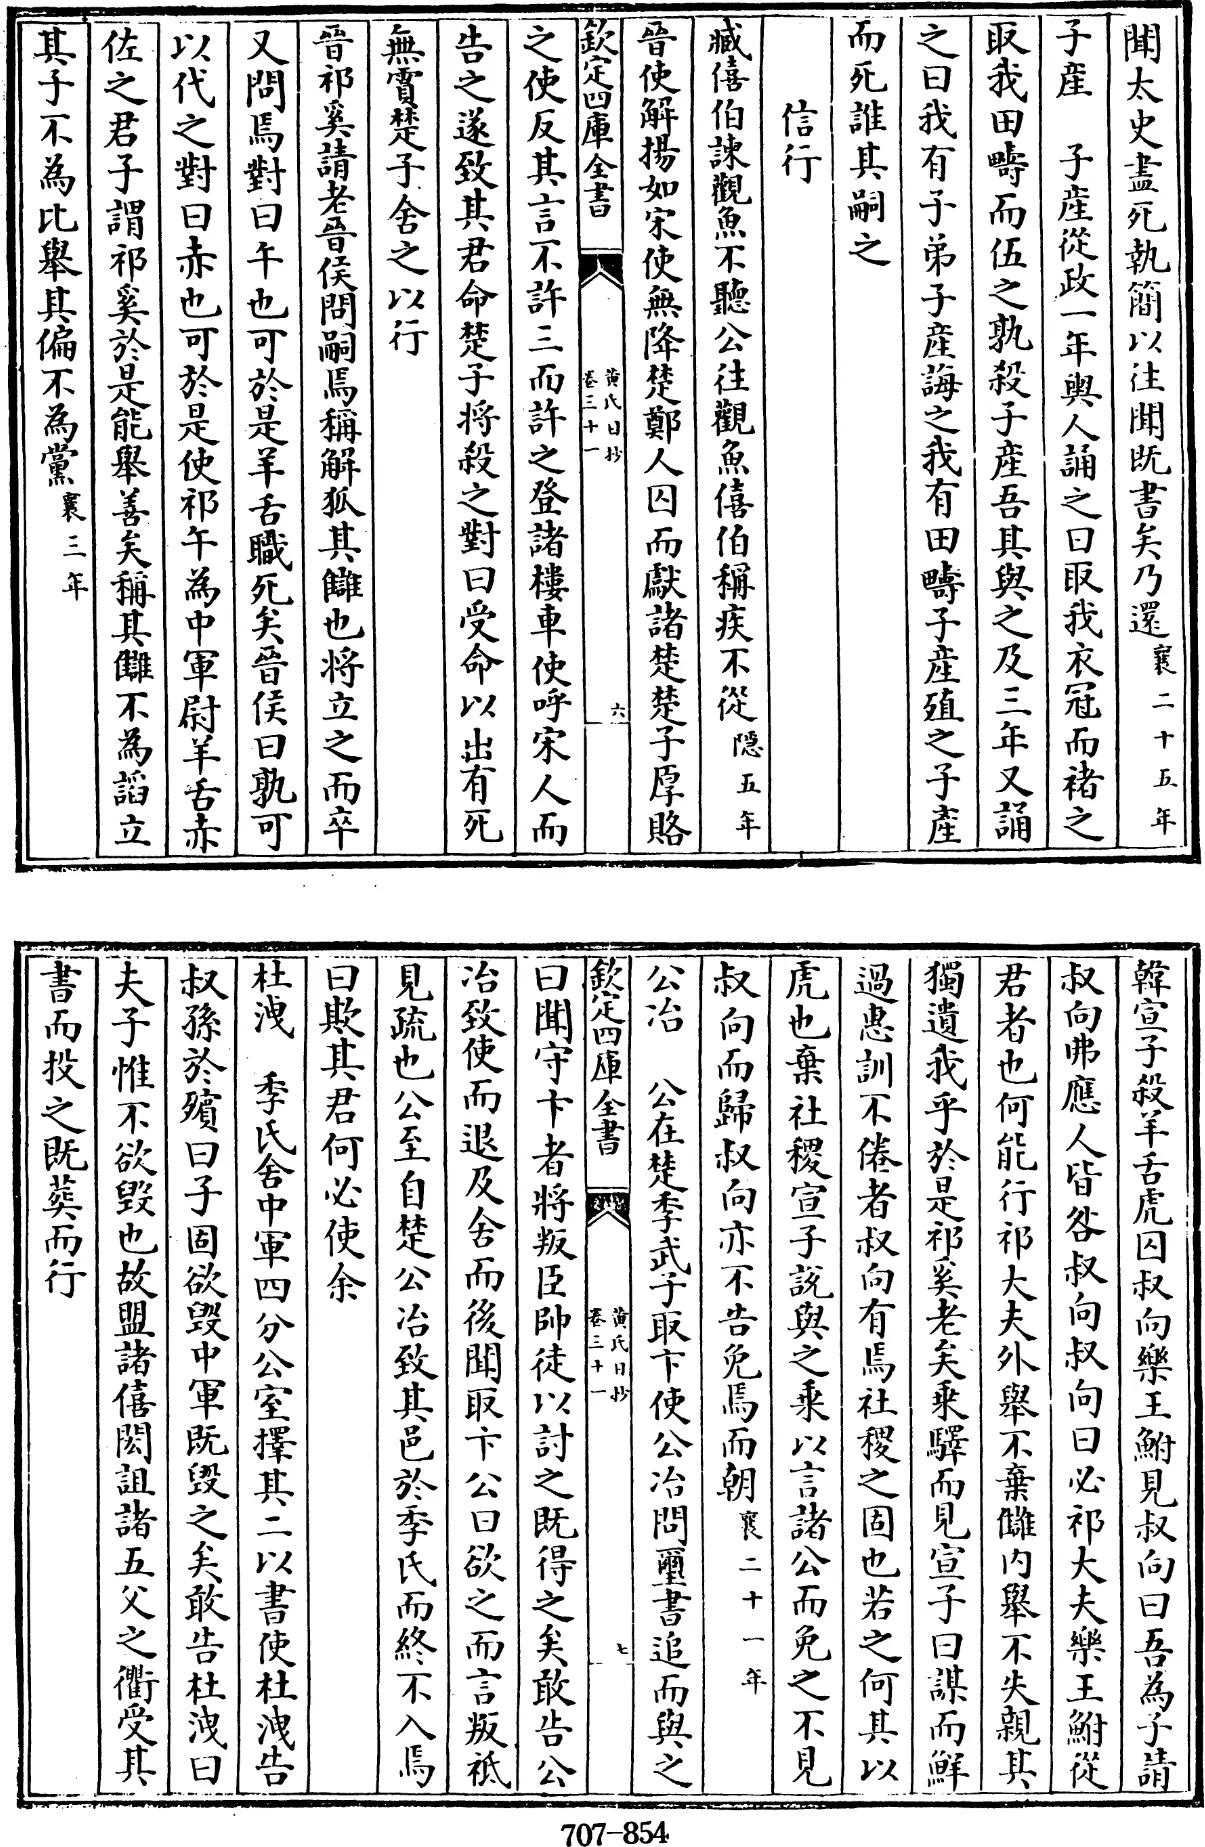 聞太史盡死執簡以往聞既書矣乃還襄二十五年
子産　子産從政一年輿人誦之曰取我衣冠而褚之
取我田疇而伍之孰殺子産吾其與之及三年又誦
之曰我有子弟子産誨之我有田疇子産殖之子產
而死誰其嗣之
信行
臧僖伯諫觀魚不聽公往觀魚僖伯稱疾不從隱五年
晉使解揚如宋使無降楚鄭人囚而獻諸楚楚子厚賂
欽定四庫全書
黄氏日抄
卷三十一
六
之使反其言不許三而許之登諸樓車使呼宋人而
告之遂致其君命楚子將殺之對曰受命以出有死
無霣楚子舍之以行
晉祁奚請老晉侯問嗣焉稱解狐其讎也將立之而卒
又問焉對曰午也可於是羊舌職死矣晉侯曰孰可
以代之對曰赤也可於是使祁午為中軍尉羊舌赤
佐之君子謂祁奚於是能舉善矣稱其讎不為謟立
其子不為比舉其偏不為黨襄三年
韓宣子殺羊舌虎囚叔向樂王鮒見叔向曰吾為子請
叔向弗應人皆咎叔向叔向曰必祁大夫樂王鮒從
君者也何能行祁大夫外舉不棄讎内舉不失親其
獨遺我乎於是祁奚老矣乘驛而見宣子曰謀而鮮
過惠訓不倦者叔向有焉社稷之固也若之何其以
虎也棄社稷宣子說與之乘以言諸公而免之不見
叔向而歸叔向亦不告免焉而朝襄二十一年
公冶　公在楚季武子取卞使公冶問璽書追而與之
欽定四庫全書
黄氏日抄
卷三十一
七
曰聞守卞者將叛臣帥徒以討之既得之矣敢告公
冶致使而退及舍而後聞取卞公曰欲之而言叛祗
見疏也公至自楚公冶致其邑於季氏而終不入焉
曰欺其君何必使余
杜洩　季氏舍中軍四分公室擇其二以書使杜洩告
叔孫於殯曰子固欲毀中軍既毀之矣敢告杜洩曰
夫子惟不欲毀也故盟諸僖閎詛諸五父之衢受其
書而投之既葬而行
707-854